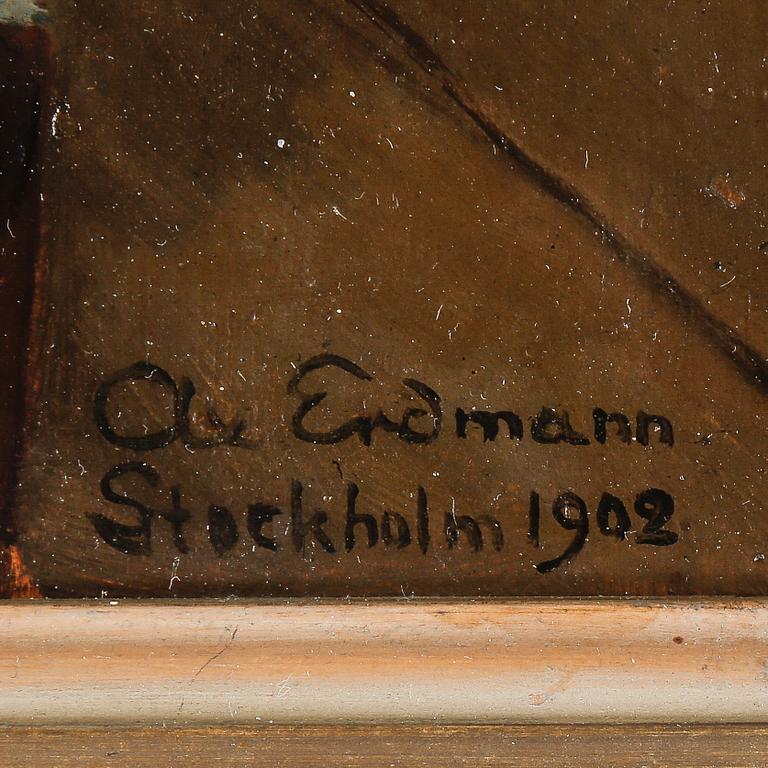 Erdmann
Stockholm 1902